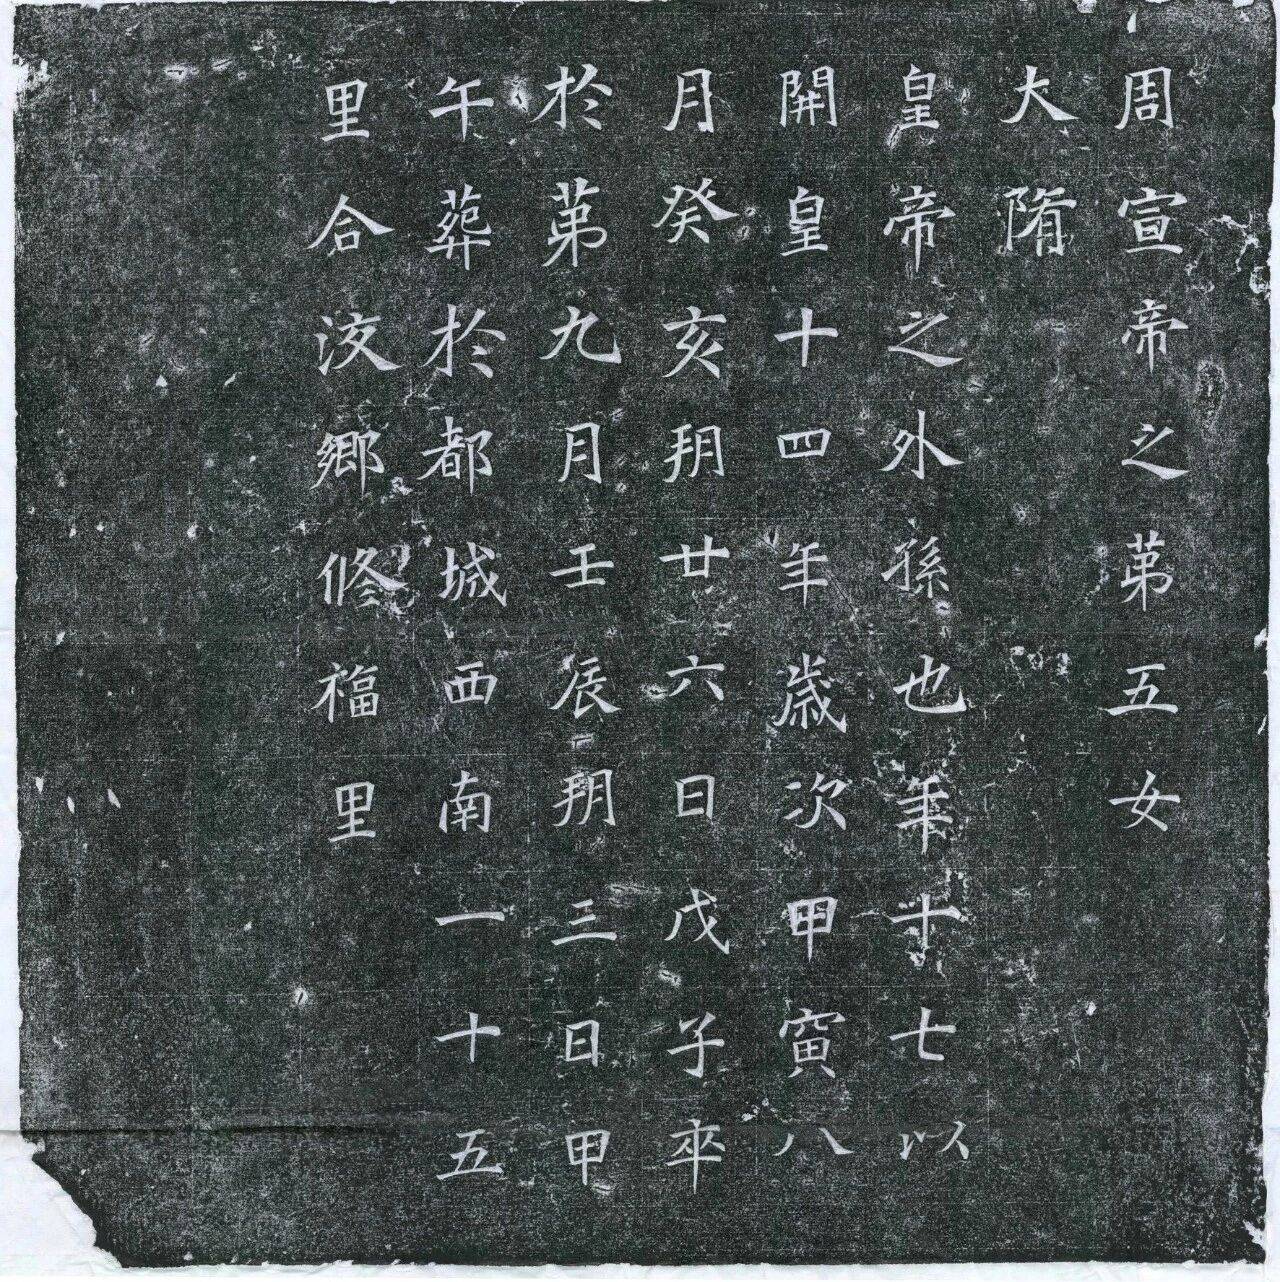 周宣帝之第五女
大隋
皇帝之外孫也年十七以
開皇十四年歲次甲寅八
月癸亥朔廿六日戊子卒
於第九月壬辰朔三日甲
午葬於都城西南一十五
里合洨鄉脩福里